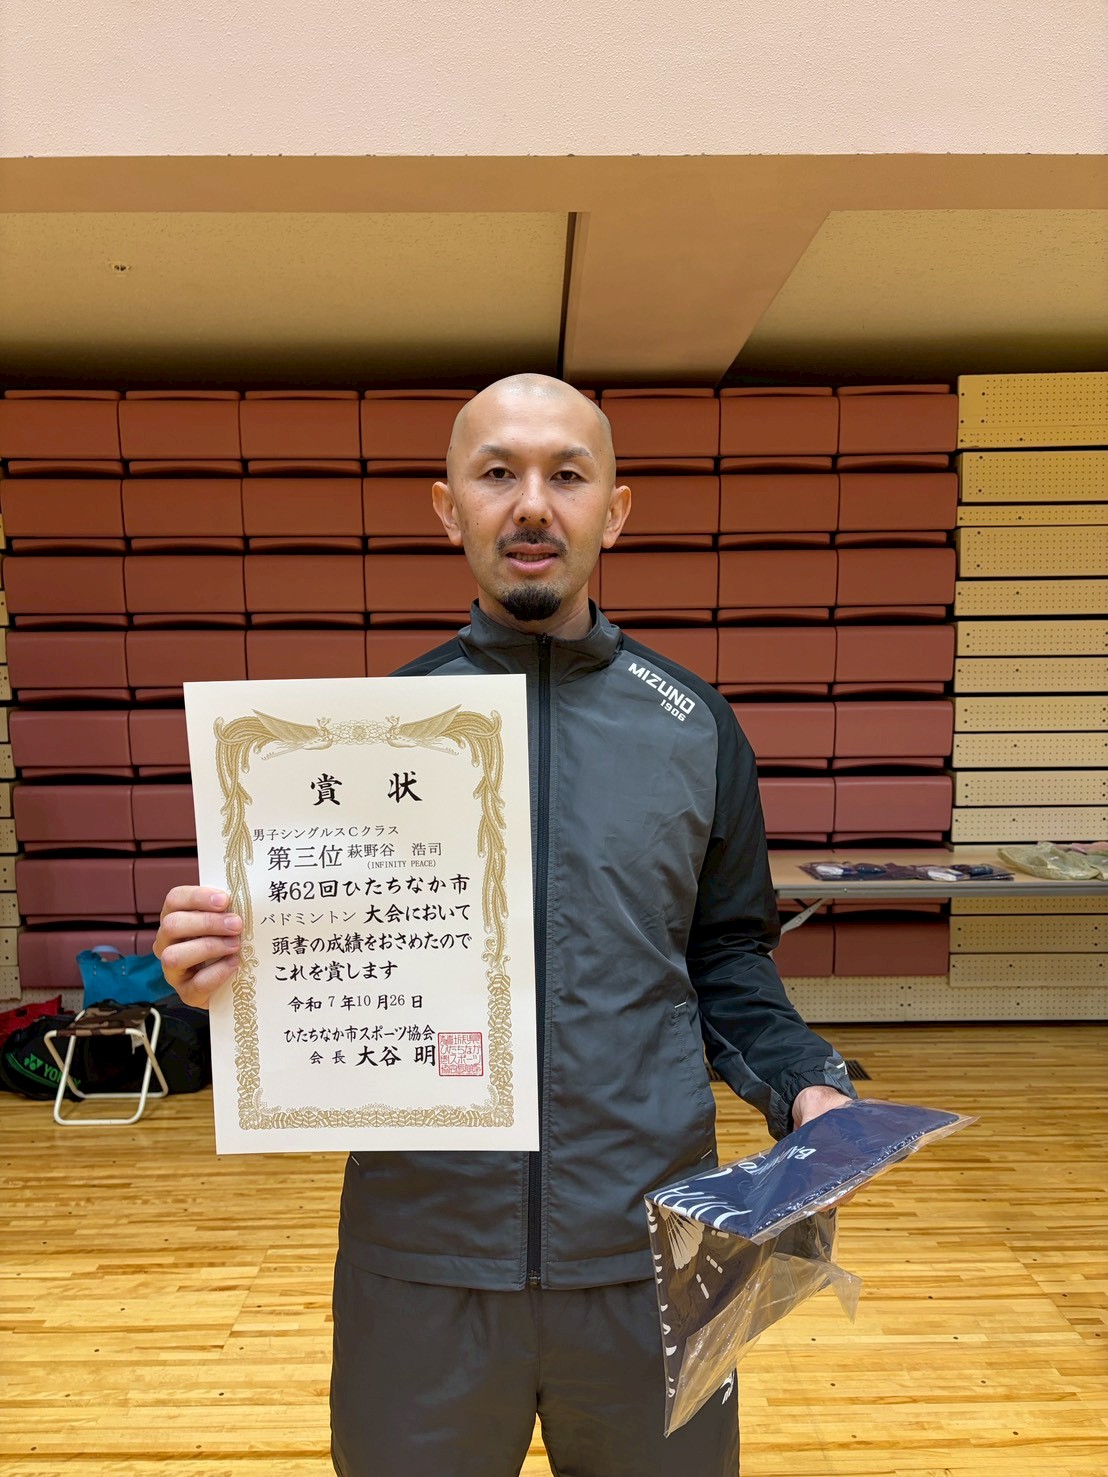 MIZUNO
1906
賞 状
男子シングルスCクラス
第三位 萩野谷 浩司
(INFINITY PEACE)
第62回ひたちなか市
バドミントン 大会において
頭書の成績をおさめたので
これを賞します
令和 7 年 10 月 26 日
ひたちなか市スポーツ協会
会 長 大谷 明